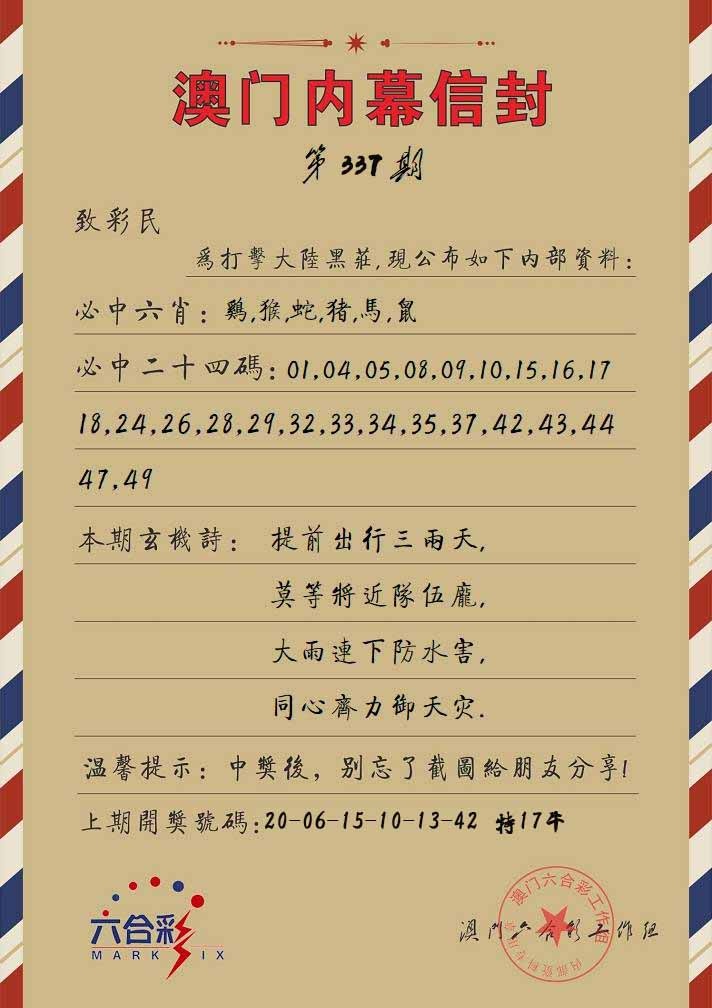 澳门内幕信封
第 337 期
致彩民
爲打擊大陸黑莊,現公布如下内部資料:
必中六肖: 鷄,猴,蛇,猪,馬,鼠
必中二十四碼: 01,04,05,08,09,10,15,16,17
18,24,26,28,29,32,33,34,35,37,42,43,44
47,49
本期玄機詩: 提前出行三兩天,
莫等將近隊伍龐,
大雨連下防水害,
同心齊力御天灾.
温馨提示: 中獎後, 别忘了截圖給朋友分享!
上期開獎號碼:20-06-15-10-13-42 特17牛
六合彩
MARK SIX
澳门六合彩工作组
澳门六合彩工作组
内部资料专用章